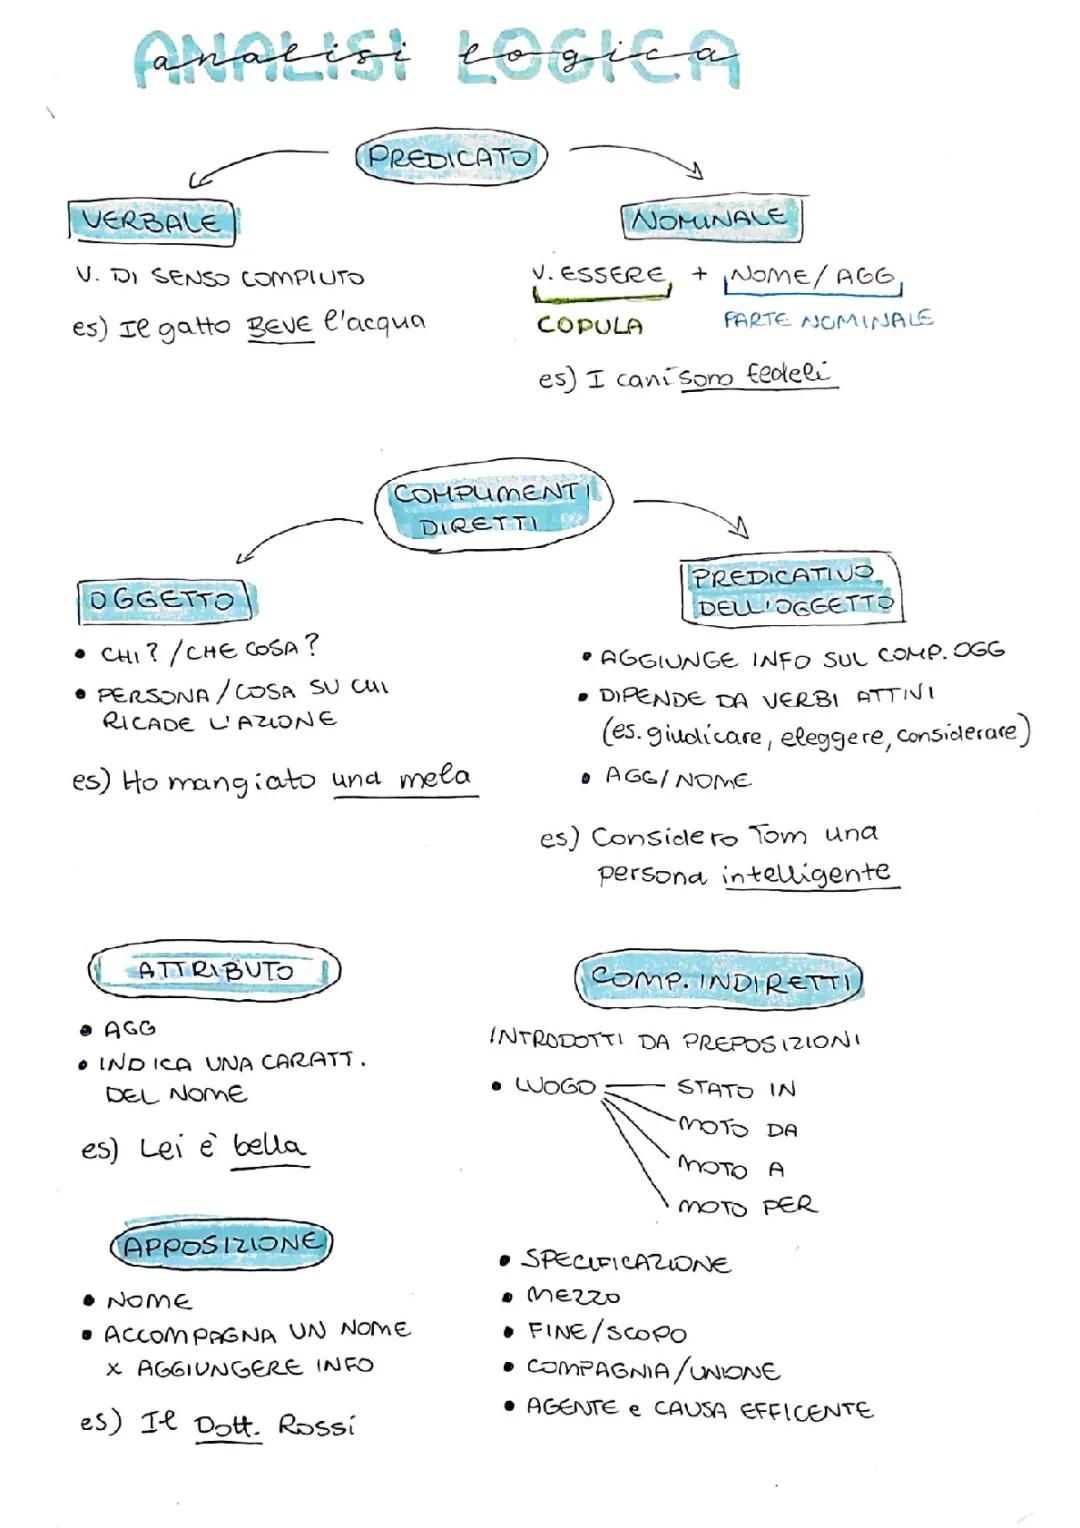 ANALISI LOGICA
analisi logica
PREDICATO
VERBALE
V. DI SENSO COMPIUTO
es) Il gatto BEVE l'acqua
NOMINALE
V. ESSERE + NOME/AGG
COPULA PARTE NOMINALE
es) I cani sono fedeli
COMPLIMENTI
DIRETTI
OGGETTO
• CHI? /CHE COSA?
• PERSONA/COSA SU CUI
RICADE L'AZIONE
es) Ho mangiato una mela
PREDICATIVO
DELL'OGGETTO
• AGGIUNGE INFO SUL COMP. OGG
• DIPENDE DA VERBI ATTIVI
(es. giudicare, eleggere, considerare)
• AGG/NOME
es) Considero Tom una
persona intelligente
ATTRIBUTO
• AGG
• INDICA UNA CARATT.
DEL NOME
es) Lei è bella
APPOSIZIONE
• NOME
• ACCOMPAGNA UN NOME
X AGGIUNGERE INFO
es) Il Dott. Rossi
COMP. INDIRETTI
INTRODOTTI DA PREPOSIZIONI
• LUOGO STATO IN
MOTO DA
MOTO A
MOTO PER
• SPECIFICAZIONE
• MEZZO
• FINE/SCOPO
• COMPAGNIA/UNIONE
• AGENTE e CAUSA EFFICENTE